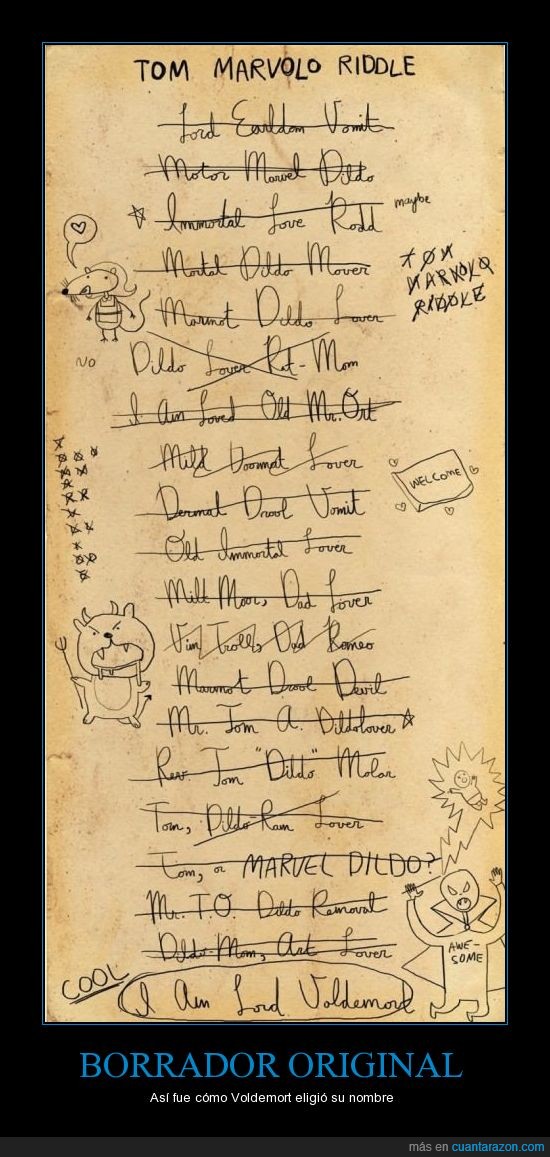 TOM MARVOLO RIDDLE
Lord Earldom Vomit
Motor Marvel Dildo
Immortal Love Rodd maybe
Mortal Dildo Mover
TOM
MARVOLO
RIDDLE
Marmot Dildo Lover
NO
Dildo Lover Rat-Mom
I Am Loved Old Mr. Ort
Mild Doormat Lover
WELCOME
Dermal Drool Vomit
Old Immortal Lover
Milt Moor, Dad Lover
Vim Trolls, Dad Romeo
Marmot Drool Devil
Mr. Tom A. Dildolover
Rev. Tom "Dildo" Molar
Tom, Dildo-Ram Lover
Tom, or MARVEL DILDO?
Mr. T.O. Dildo Removal
Dildo-Mom, Art Lover
AWE-
SOME
COOL
I Am Lord Voldemort
BORRADOR ORIGINAL
Así fue cómo Voldemort eligió su nombre
más en cuantarazon.com